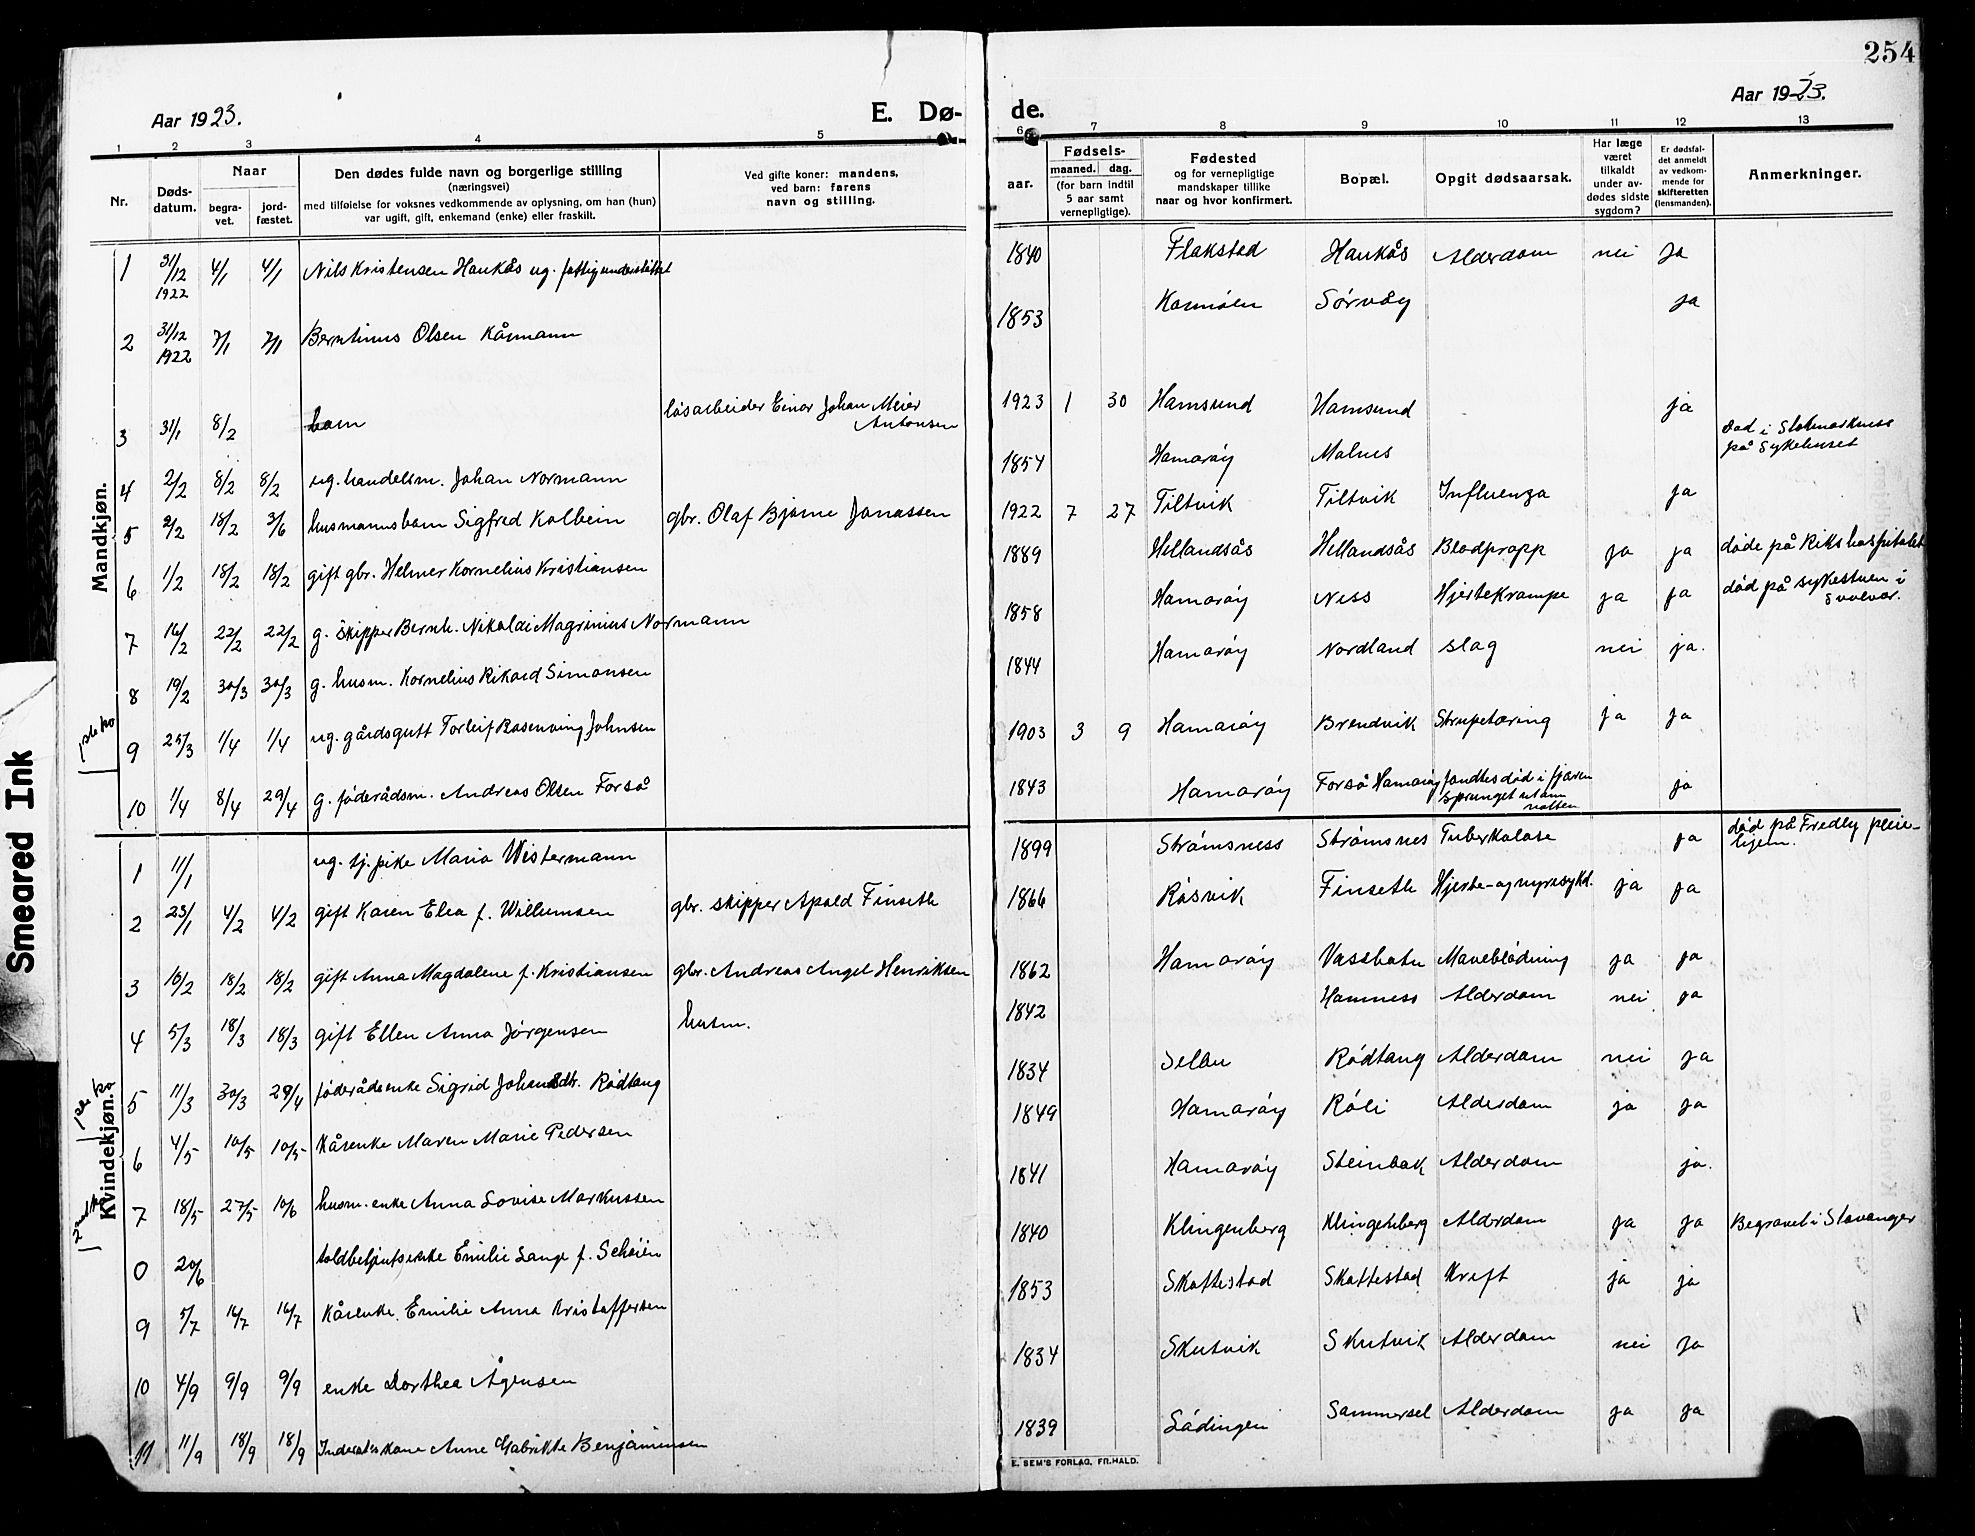 254
Aar 1923.
E. Dø-
de.
Aar 1923.
1 2 3 4 5 6 7 8 9 10 11 12 13
Nr.
Døds-
datum.
Naar
begra-
vet.
jord-
fæstet.
Den dødes fulde navn og borgerlige stilling
(næringsvei)
med tilføielse for voksnes vedkommende av oplysning, om han (hun)
var ugift, gift, enkemand (enke) eller fraskilt.
Ved gifte koner: mandens,
ved barn: farens
navn og stilling.
aar.
Fødsels-
maaned. dag.
(for barn indtil
5 aar samt
vernepligtige).
Fødested
og for vernepligtige
mandskaper tillike
naar og hvor konfirmert.
Bopæl.
Opgit dødsaarsak.
Har læge
været
tilkaldt
under av-
dødes sidste
sygdom?
Er dødsfal-
det anmeldt
av vedkom-
mende for
skifteretten
(lensmanden).
Anmerkninger.
Mandkjøn.
1 31/12 1922 4/1 4/1 Nils Kristensen Haukås ug. fattigunderstøttet 1840 Flakstad Haukås Alderdom nei ja
2 31/12 1922 7/1 7/1 Berntinus Olsen Kårmann 1853 Sørvåg ja
3 31/1 8/2 barn løsarbeider Einar Johan Meier Antonsen 1923 1 30 Hamsund Hamsund ja
4 2/2 8/2 8/2 ug. handelsm. Johan Normann 1854 Hamarøy Malnes død i Stokmarknes på Sykehuset
5 2/2 18/2 3/6 husmannsbarn Sigfred Kolbein gbr. Olaf Bjarne Jonassen 1922 7 27 Tiltvik Tiltvik Influenza ja
6 1/2 18/2 18/2 gift gbr. Helmer Kornelius Kristiansen 1889 Hellandsås Hellandsås Blodpropp ja ja døde på Rikshospitalet
7 16/2 22/2 22/2 g. skipper Bernh. Nikolai Magrinius Normann 1858 Hamarøy Ness Hjertekrampe ja ja død på sykestuen i Svolvær.
8 19/2 30/3 30/3 g. husm. Kornelius Rikard Simonsen 1844 Hamarøy Nordland slag nei ja.
9 25/3 1/4 1/4 ug. gårdsgutt Torleif Rosenving Johnsen 1903 3 9 Hamarøy Brendvik Strupetæring ja ja
10 1/4 8/4 29/4 g. føderådsm. Andreas Olsen Forså 1843 Hamarøy Forså Hamarøy fandtes død i fjæren sprunget ut om natten ja
Kvindekjøn.
1 11/1 ug. tj.pike Maria Wistermann 1899 Strømsness Strømsnes Tuberkulose ja død på Fredly pleie-hjem.
2 23/1 4/2 4/2 gift Karen Elea f. Willumsen gbr. skipper Apold Finseth 1866 Røsvik Finseth Hjerte- og nyresykd. ja ja
3 10/2 18/2 18/2 gift Anna Magdalene f. Kristiansen gbr. Andreas Angel Henriksen 1862 Hamarøy Vassbotn Maveblødning ja ja
4 5/3 18/3 18/3 gift Ellen Anna Jørgensen husm. 1842 Hamness Alderdom nei ja
5 11/3 30/3 29/4 føderådsenke Sigrid Johansdtr. Rødtang 1834 Selbu Rødtang Alderdom nei ja
6 4/5 10/5 10/5 Kårenke Maren Marie Pedersen 1849 Hamarøy Røli Alderdom ja ja
7 18/5 27/5 10/6 husm. enke Anna Lovise Markussen 1841 Hamarøy Steinbak Alderdom ja.
0 20/6 toldbetjentsenke Emilie Lange f. Schøien 1840 Klingenberg Klingenberg Alderdom ja ja Begravet i Stavanger
9 5/7 16/7 16/7 Kårenke. Emilie Anna Kristoffersen 1853 Skottestad Skottestad Kreft ja ja
10 4/9 9/9 9/9 enke Dorthea Ågensen 1834 Skutvik Skutvik Alderdom nei ja
11 11/9 18/9 18/9 Inderstkone Anne Gabrikke Benjaminsen 1839 Lødingen Sammersel Alderdom ja ja
E. SEM'S FORLAG, FR.HALD.
Smeared Ink